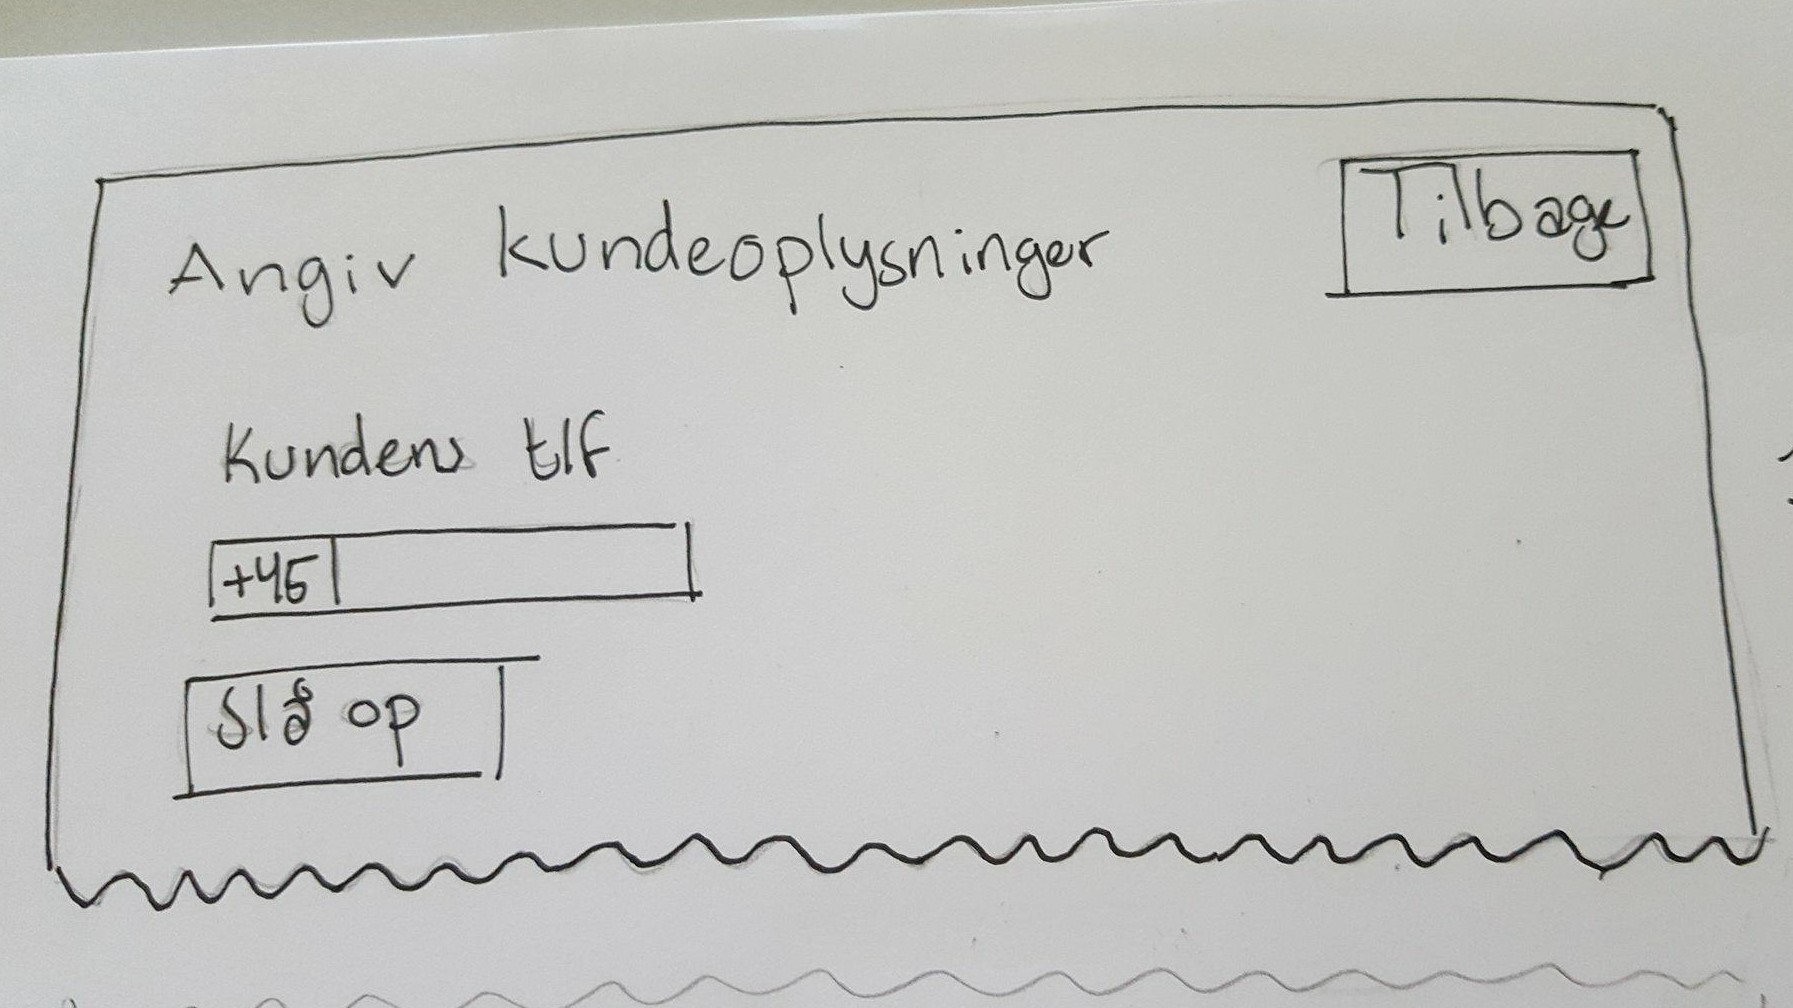 Angiv kundeoplysninger
Tilbage
Kundens tlf
+45
Slå op